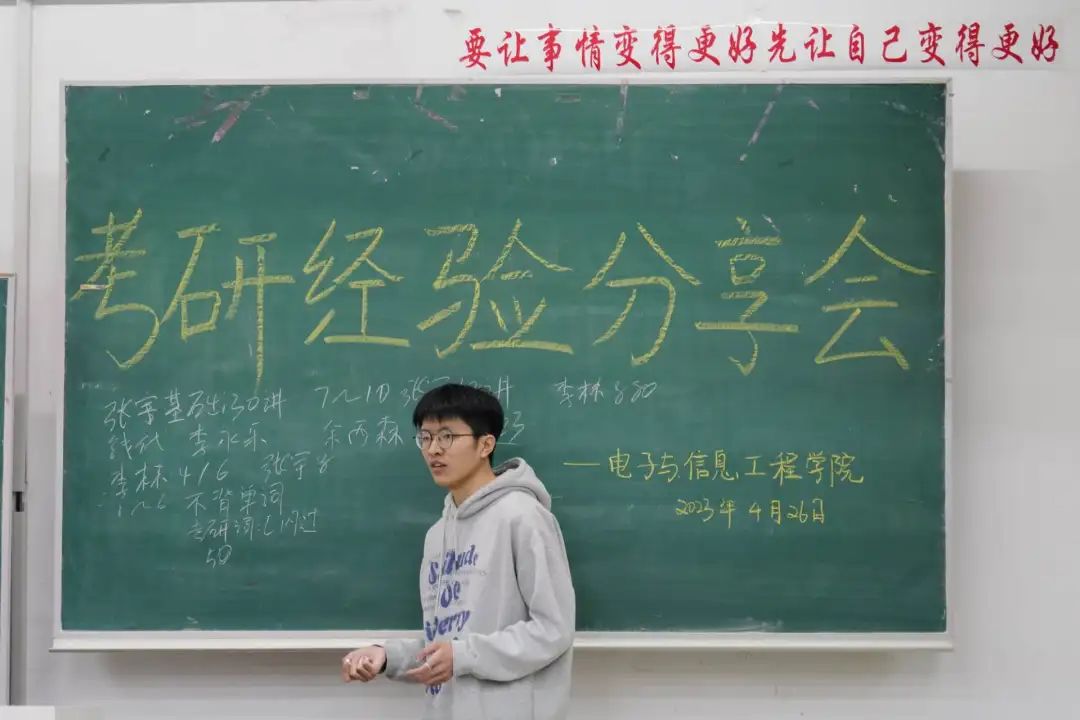 要让事情变得更好先让自己变得更好
考研经验分享会
张宇基础30讲 7~10 李林880
线代 李永乐 余丙森
李林4/6 张宇8
1~6 不背单词
考研词汇闪过
50
—电子与信息工程学院
2023年4月26日
de
Oe
Verry